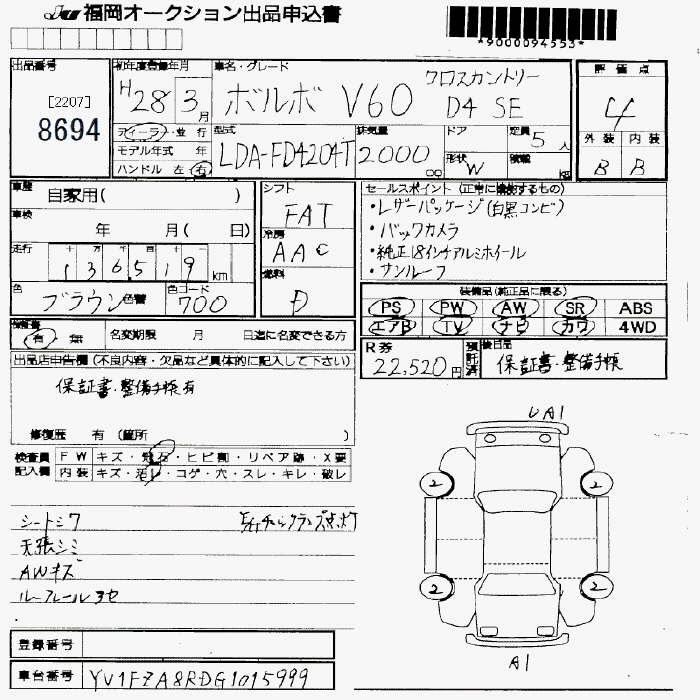 福岡オークション出品申込書
*9000094553*
出品番号
[2207]
8694
初年度登録年月
H28 3月
車名・グレード
ボルボ V60 クロスカントリー
D4 SE
評価点
4
外装 内装
B B
ディーラ・並行
モデル年式 年
ハンドル 左 右
型式
LDA-FD4204T
排気量
2000 cc
ドア
形状 W
定員 5人
積載 kg
車歴
自家用( )
車検
年 月( 日)
走行
136519 km
色
ブラウン 色替
色コード
700
シフト
FAT
冷房
AAC
燃料
D
セールスポイント (正常に機能するもの)
・レザーパッケージ(白黒コンビ)
・バックカメラ
・純正18インチアルミホイール
・サンルーフ
装備品(純正品に限る)
PS PW AW SR ABS
エアB TV ナビ カワ 4WD
保証書
有 無
名変期限 月 日迄に名変できる方
R券
22,520円
預託済
後日品
保証書・整備手帳
出品店申告欄 (不良内容・欠品など具体的に記入して下さい)
保証書・整備手帳有
修復歴 有 (箇所 )
検査員 FW キズ・飛石・ヒビ割・リペア跡・X要
記入欄 内装 キズ・汚レ・コゲ・穴・スレ・キレ・破レ
シートシワ
天張シミ
AWキズ
UA1
2 2
2 2
A1
登録番号
車台番号 YV1FZA8RDG1015999